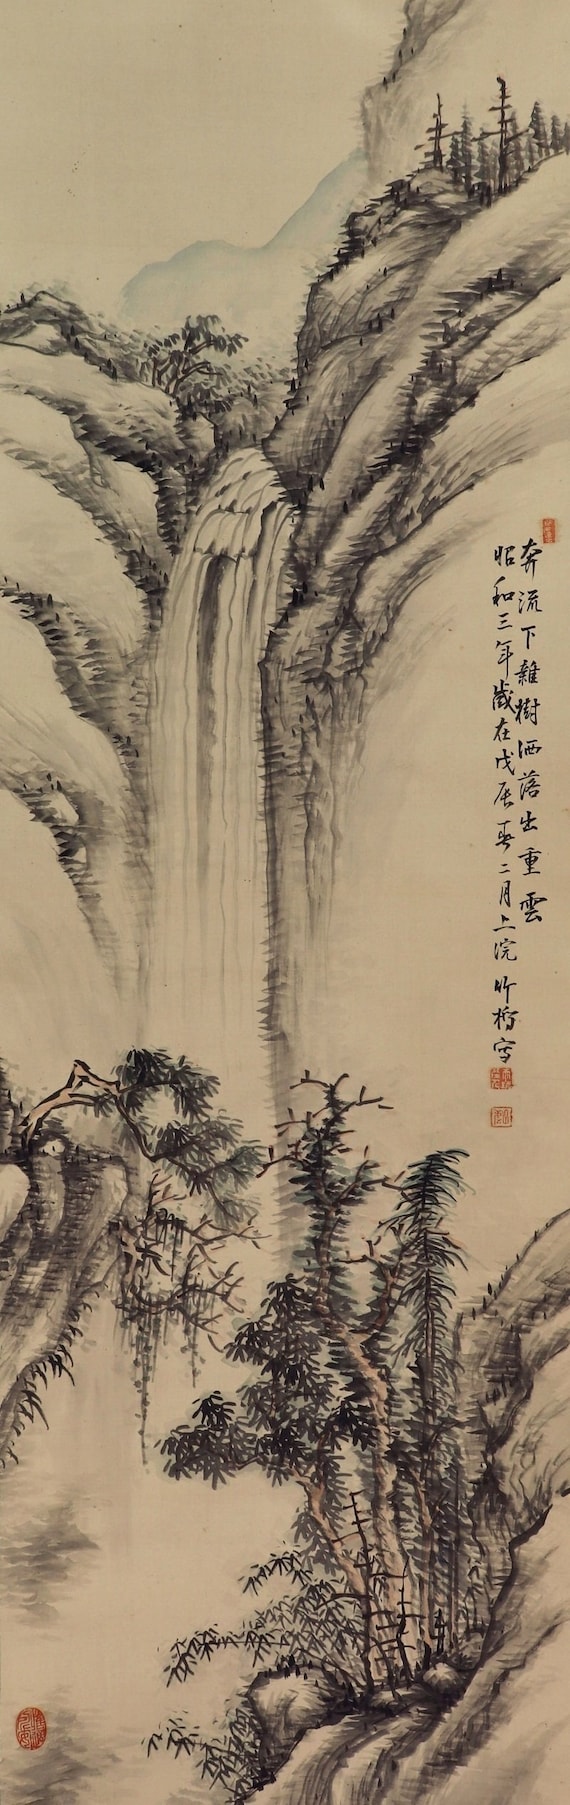 奔流下雜樹洒落出重雲
昭和三年歲在戊辰春二月上浣 竹橋写